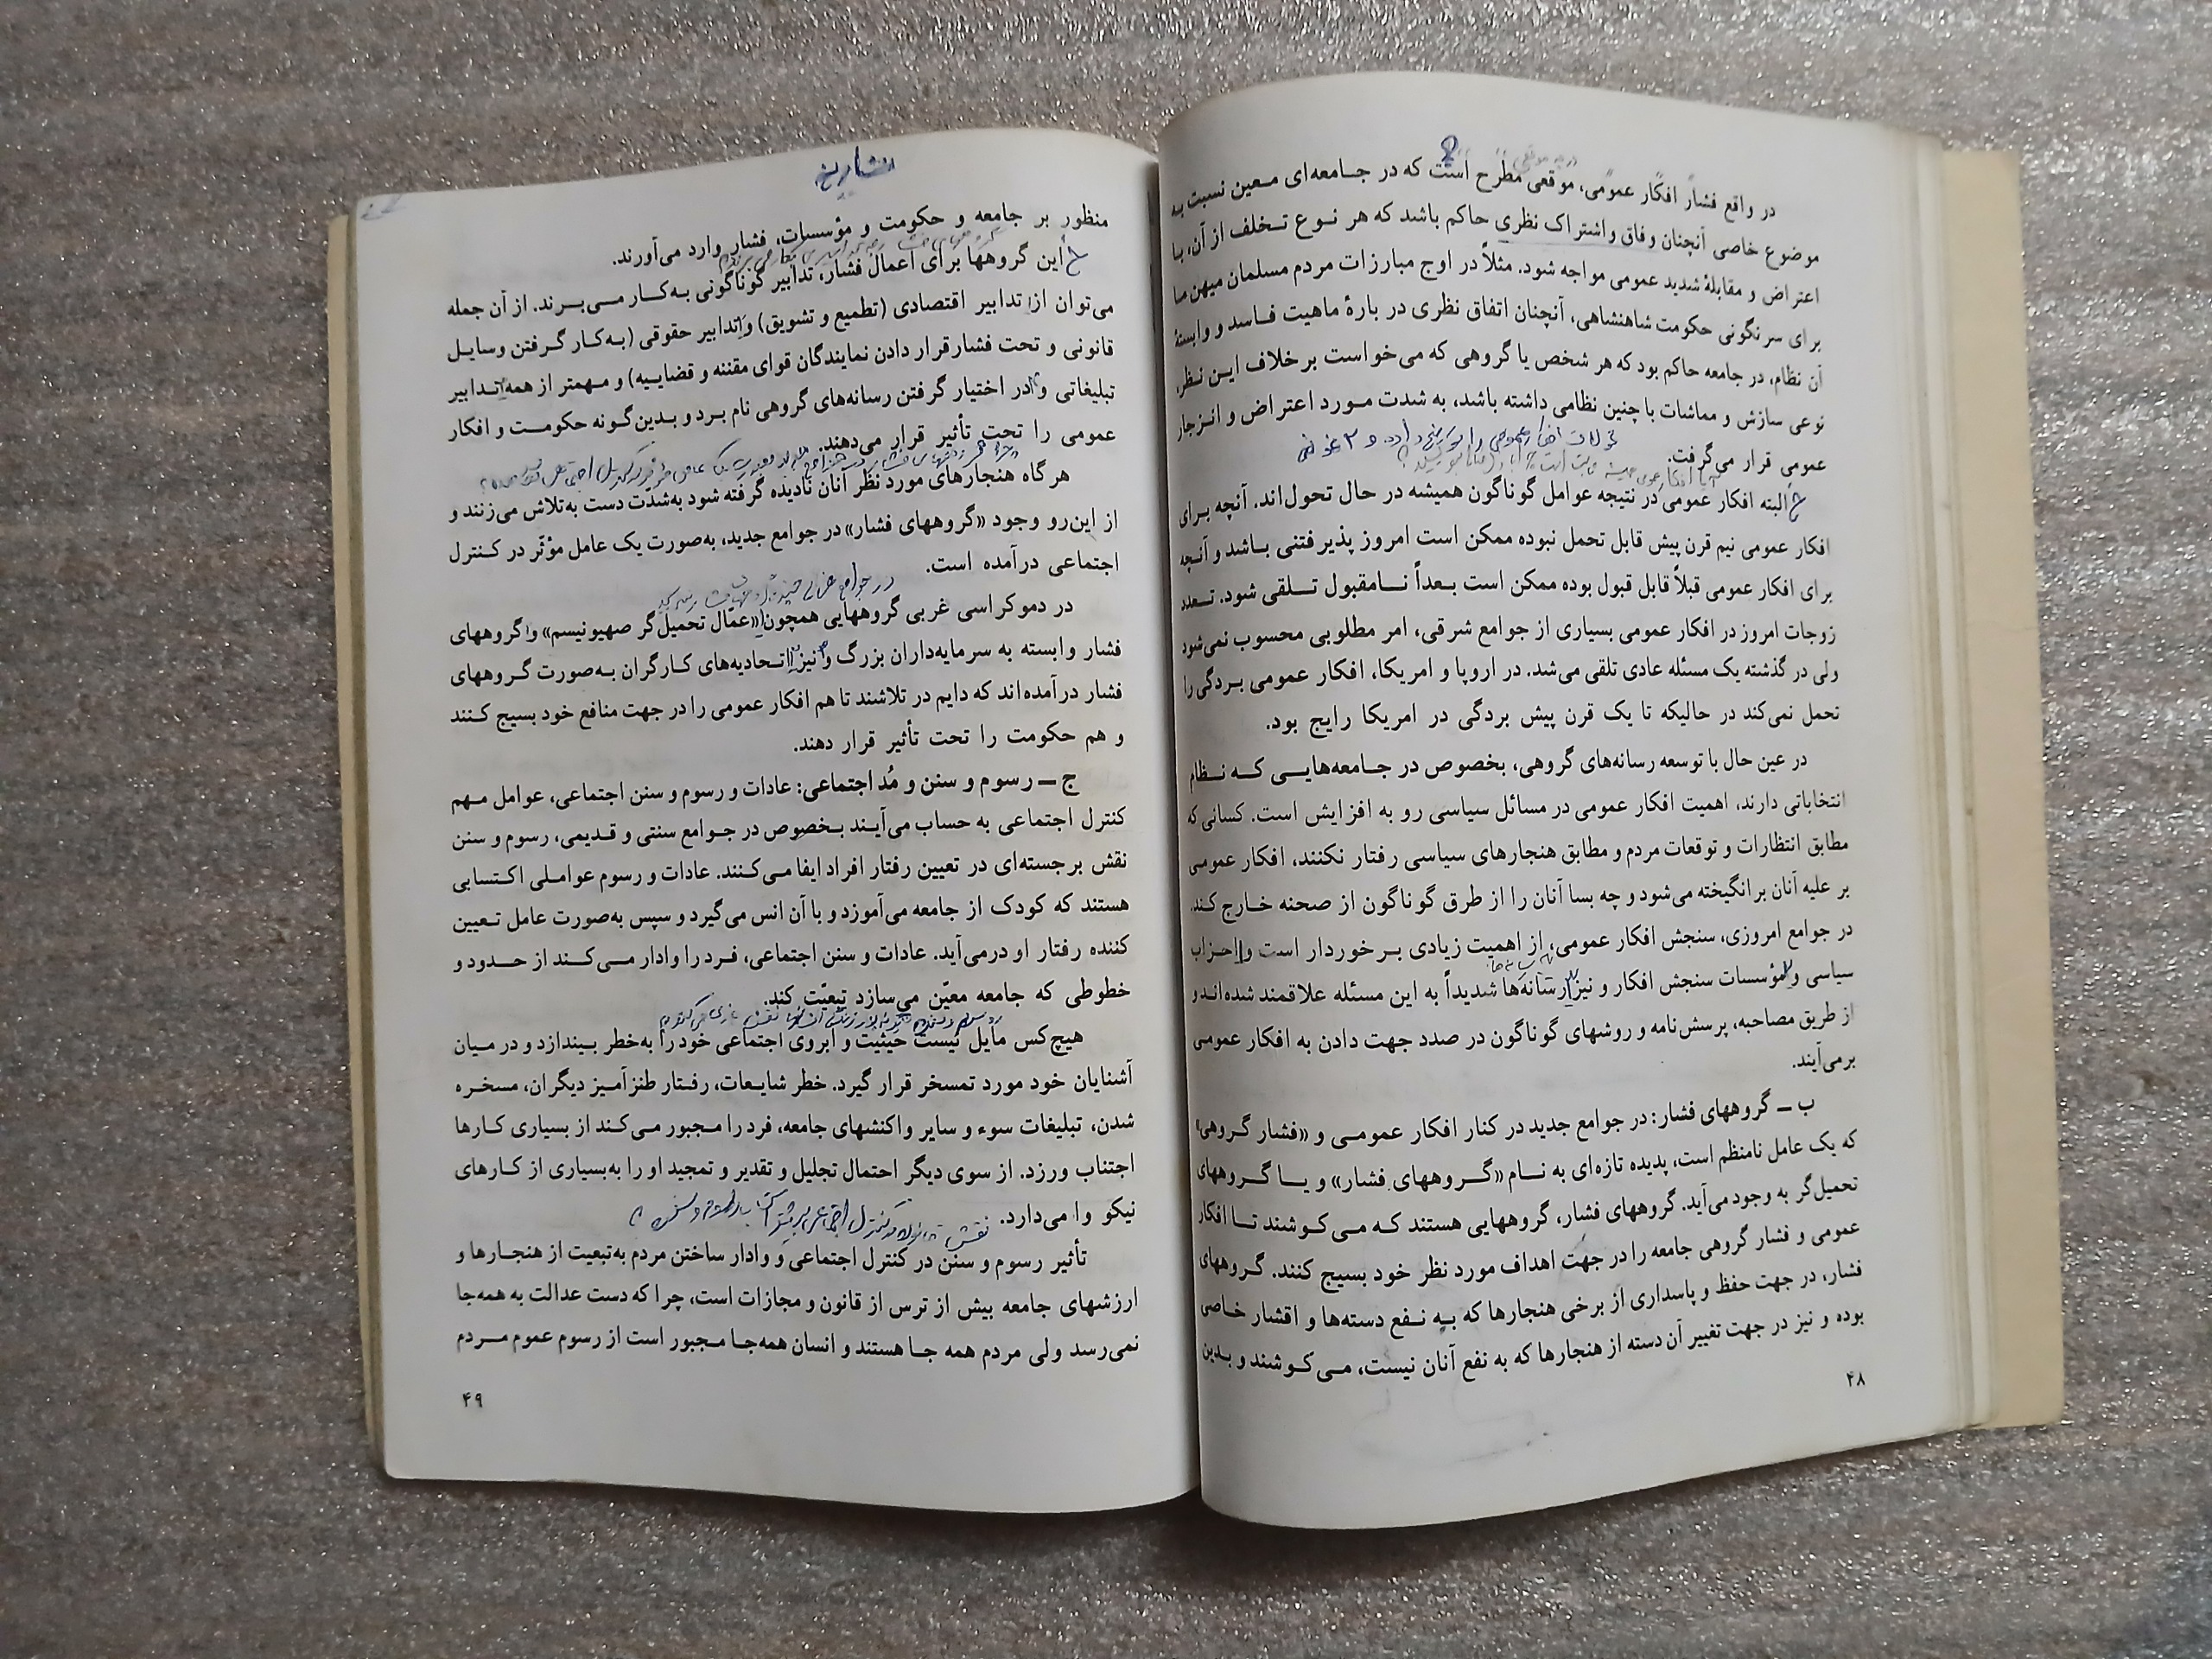 در واقع فشار افکار عمومی، موقعی مطرح است که در جامعه‌ای معین نسبت به
موضوع خاصی آنچنان وفاق واشتراک نظری حاکم باشد که هر نوع تخلف از آن، با
اعتراض و مقابلهٔ شدید عمومی مواجه شود. مثلاً در اوج مبارزات مردم مسلمان میهن ما
برای سرنگونی حکومت شاهنشاهی، آنچنان اتفاق نظری در بارهٔ ماهیت فاسد و وابستهٔ
آن نظام، در جامعه حاکم بود که هر شخص یا گروهی که می‌خواست برخلاف این نظر،
نوعی سازش و مماشات با چنین نظامی داشته باشد، به شدت مورد اعتراض و انزجار
عمومی قرار می‌گرفت.
البته افکار عمومی در نتیجه عوامل گوناگون همیشه در حال تحول‌اند. آنچه برای
افکار عمومی نیم قرن پیش قابل تحمل نبوده ممکن است امروز پذیرفتنی باشد و آنچه
برای افکار عمومی قبلاً قابل قبول بوده ممکن است بعداً نامقبول تلقی شود. تعدد
زوجات امروز در افکار عمومی بسیاری از جوامع شرقی، امر مطلوبی محسوب نمی‌شود
ولی در گذشته یک مسئله عادی تلقی می‌شد. در اروپا و امریکا، افکار عمومی بردگی را
تحمل نمی‌کند در حالیکه تا یک قرن پیش بردگی در امریکا رایج بود.
در عین حال با توسعه رسانه‌های گروهی، بخصوص در جامعه‌هایی که نظام
انتخاباتی دارند، اهمیت افکار عمومی در مسائل سیاسی رو به افزایش است. کسانی که
مطابق انتظارات و توقعات مردم و مطابق هنجارهای سیاسی رفتار نکنند، افکار عمومی
بر علیه آنان برانگیخته می‌شود و چه بسا آنان را از طرق گوناگون از صحنه خارج کند.
در جوامع امروزی، سنجش افکار عمومی، از اهمیت زیادی برخوردار است و احزاب
سیاسی و مؤسسات سنجش افکار و نیز رسانه‌ها شدیداً به این مسئله علاقمند شده‌اند و
از طریق مصاحبه، پرسش‌نامه و روشهای گوناگون در صدد جهت دادن به افکار عمومی
برمی‌آیند.
ب ــ گروههای فشار: در جوامع جدید در کنار افکار عمومی و «فشار گروهی»
که یک عامل نامنظم است، پدیده تازه‌ای به نام «گروههای فشار» و یا گروههای
تحمیل‌گر به وجود می‌آید. گروههای فشار، گروههایی هستند که می‌کوشند تا افکار
عمومی و فشار گروهی جامعه را در جهت اهداف مورد نظر خود بسیج کنند. گروههای
فشار، در جهت حفظ و پاسداری از برخی هنجارها که به نفع دسته‌ها و اقشار خاصی
بوده و نیز در جهت تغییر آن دسته از هنجارها که به نفع آنان نیست، می‌کوشند و بدین
۴۸
منظور بر جامعه و حکومت و مؤسسات، فشار وارد می‌آورند.
این گروهها برای اعمال فشار، تدابیر گوناگونی به‌کار می‌برند. از آن جمله
می‌توان از تدابیر اقتصادی (تطمیع و تشویق) و تدابیر حقوقی (به‌کار گرفتن وسایل
قانونی و تحت فشار قرار دادن نمایندگان قوای مقننه و قضاییه) و مهمتر از همه تدابیر
تبلیغاتی و در اختیار گرفتن رسانه‌های گروهی نام برد و بدین‌گونه حکومت و افکار
عمومی را تحت تأثیر قرار می‌دهند.
هرگاه هنجارهای مورد نظر آنان نادیده گرفته شود به‌شدت دست به‌تلاش می‌زنند و
از این‌رو وجود «گروههای فشار» در جوامع جدید، به‌صورت یک عامل مؤثّر در کنترل
اجتماعی درآمده است.
در دموکراسی غربی گروههایی همچون «عمّال تحمیل‌گر صهیونیسم» و گروههای
فشار وابسته به سرمایه‌داران بزرگ و نیز اتحادیه‌های کارگران به‌صورت گروههای
فشار درآمده‌اند که دایم در تلاشند تا هم افکار عمومی را در جهت منافع خود بسیج کنند
و هم حکومت را تحت تأثیر قرار دهند.
ج ــ رسوم و سنن و مُد اجتماعی: عادات و رسوم و سنن اجتماعی، عوامل مهم
کنترل اجتماعی به حساب می‌آیند بخصوص در جوامع سنتی و قدیمی، رسوم و سنن
نقش برجسته‌ای در تعیین رفتار افراد ایفا می‌کنند. عادات و رسوم عواملی اکتسابی
هستند که کودک از جامعه می‌آموزد و با آن انس می‌گیرد و سپس به‌صورت عامل تعیین
کننده رفتار او درمی‌آید. عادات و سنن اجتماعی، فرد را وادار می‌کند از حدود و
خطوطی که جامعه معیّن می‌سازد تبعیّت کند.
هیچ‌کس مایل نیست حیثیت و آبروی اجتماعی خود را به‌خطر بیندازد و در میان
آشنایان خود مورد تمسخر قرار گیرد. خطر شایعات، رفتار طنزآمیز دیگران، مسخره
شدن، تبلیغات سوء و سایر واکنشهای جامعه، فرد را مجبور می‌کند از بسیاری کارها
اجتناب ورزد. از سوی دیگر احتمال تجلیل و تقدیر و تمجید او را به‌بسیاری از کارهای
نیکو وا می‌دارد.
تأثیر رسوم و سنن در کنترل اجتماعی و وادار ساختن مردم به‌تبعیت از هنجارها و
ارزشهای جامعه بیش از ترس از قانون و مجازات است، چرا که دست عدالت به همه‌جا
نمی‌رسد ولی مردم همه جا هستند و انسان همه‌جا مجبور است از رسوم عموم مردم
۴۹